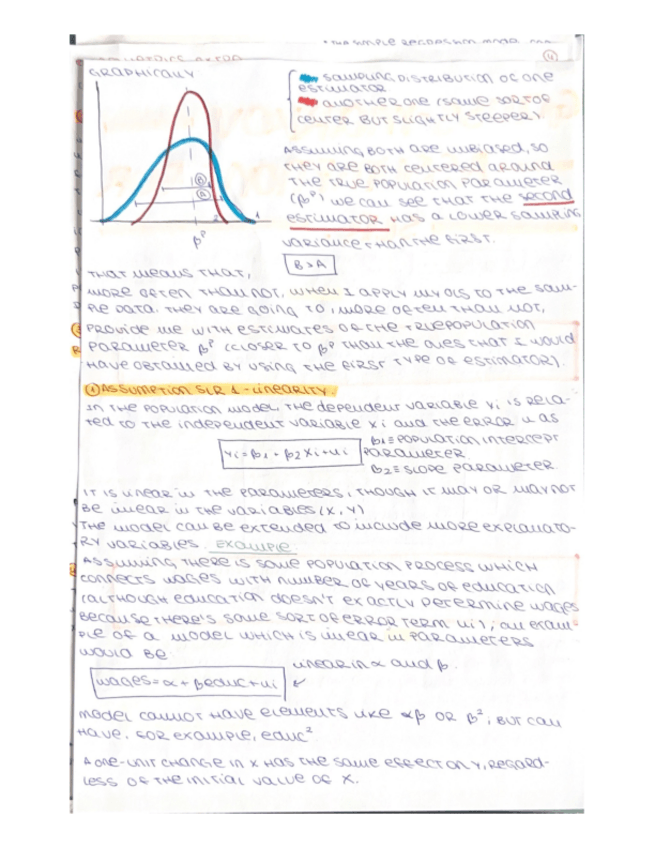 • THE SIMPLE REGRESSION MODEL
4
GRAPHICALLY
SAMPLING DISTRIBUTION OF ONE
ESTIMATOR
ANOTHER ONE (SAME SORT OF
CENTER BUT SLIGHTLY STEEPER).
ASSUMING BOTH ARE UNBIASED, SO
THEY ARE BOTH CENTERED AROUND
THE TRUE POPULATION PARAMETER
(βᴾ) WE CAN SEE THAT THE SECOND
ESTIMATOR HAS A LOWER SAMPLING
VARIANCE THAN THE FIRST.
B
A
2
1
βᴾ
B > A
THAT MEANS THAT,
MORE OFTEN THAN NOT, WHEN I APPLY MY OLS TO THE SAM-
PLE DATA. THEY ARE GOING TO, MORE OFTEN THAN NOT,
PROVIDE ME WITH ESTIMATES OF THE TRUE POPULATION
PARAMETER βᴾ (CLOSER TO βᴾ THAN THE ONES THAT I WOULD
HAVE OBTAINED BY USING THE FIRST TYPE OF ESTIMATOR).
1 ASSUMPTION SLR 1 - LINEARITY.
IN THE POPULATION MODEL, THE DEPENDENT VARIABLE Yi IS RELA-
TED TO THE INDEPENDENT VARIABLE Xi AND THE ERROR U AS
Yi = β1 + β2 Xi + ui
β1 ≡ POPULATION INTERCEPT
PARAMETER
β2 ≡ SLOPE PARAMETER
IT IS LINEAR IN THE PARAMETERS, THOUGH IT MAY OR MAY NOT
BE LINEAR IN THE VARIABLES (X, Y)
THE MODEL CAN BE EXTENDED TO INCLUDE MORE EXPLANATO-
RY VARIABLES. EXAMPLE
ASSUMING THERE IS SOME POPULATION PROCESS WHICH
CONNECTS WAGES WITH NUMBER OF YEARS OF EDUCATION
(ALTHOUGH EDUCATION DOESN'T EXACTLY DETERMINE WAGES
BECAUSE THERE'S SOME SORT OF ERROR TERM ui), AN EXAM-
PLE OF A MODEL WHICH IS LINEAR IN PARAMETERS
WOULD BE
LINEAR IN α AND β.
WAGES = α + βEDUC + ui
MODEL CANNOT HAVE ELEMENTS LIKE αβ OR β², BUT CAN
HAVE, FOR EXAMPLE, EDUC²
A ONE-UNIT CHANGE IN X HAS THE SAME EFFECT ON Y, REGARD-
LESS OF THE INITIAL VALUE OF X.